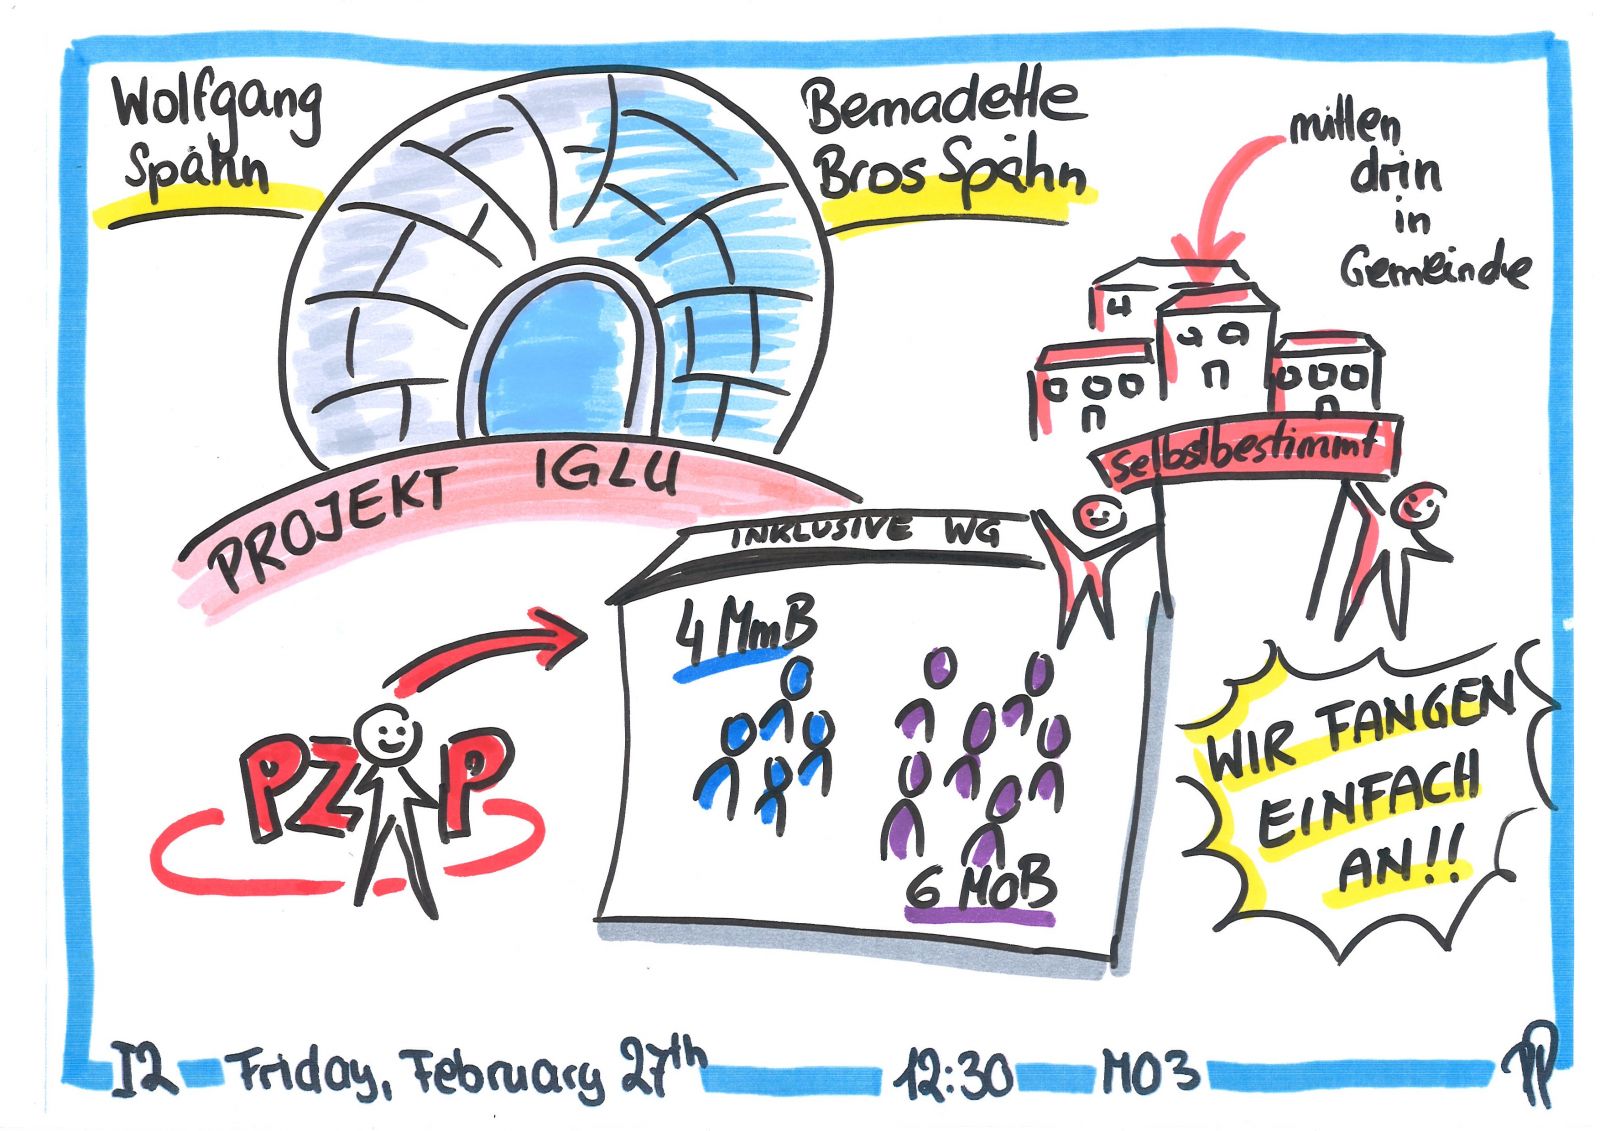 Wolfgang
Spähn
Bernadette
Bros Spähn
mitten
drin
in
Gemeinde
selbstbestimmt
PROJEKT IGLU
INKLUSIVE WG
4 MmB
6 MoB
PZP
WIR FANGEN
EINFACH
AN!!
I2 Friday, February 27th 12:30 M03
PP